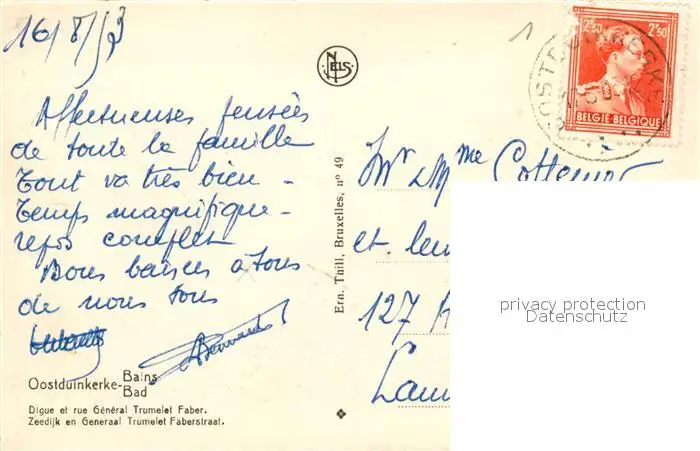 16/8/53
Affectueuses pensées
de toute la famille
Tout va très bien -
Temps magnifique -
repos complet
Bons baisers à tous
de nous tous
Oostduinkerke-Bains
Bad
Digue et rue Général Trumelet Faber.
Zeedijk en Generaal Trumelet Faberstraat.
NELS
Ern. Thill, Bruxelles, nº 49
2F50 2F50
BELGIE-BELGIQUE
OOSTDUINKERKE
Mr & Mme
et leu
127
privacy protection
Datenschutz